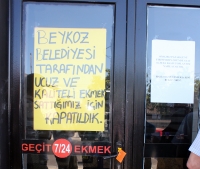 BEYKOZ
BELEDİYESİ
TARAFINDAN
UCUZ VE
KALİTELİ EKMEK
SATTIĞIMIZ İÇİN
KAPATILDIK.
GEÇİT 7/24 EKMEK